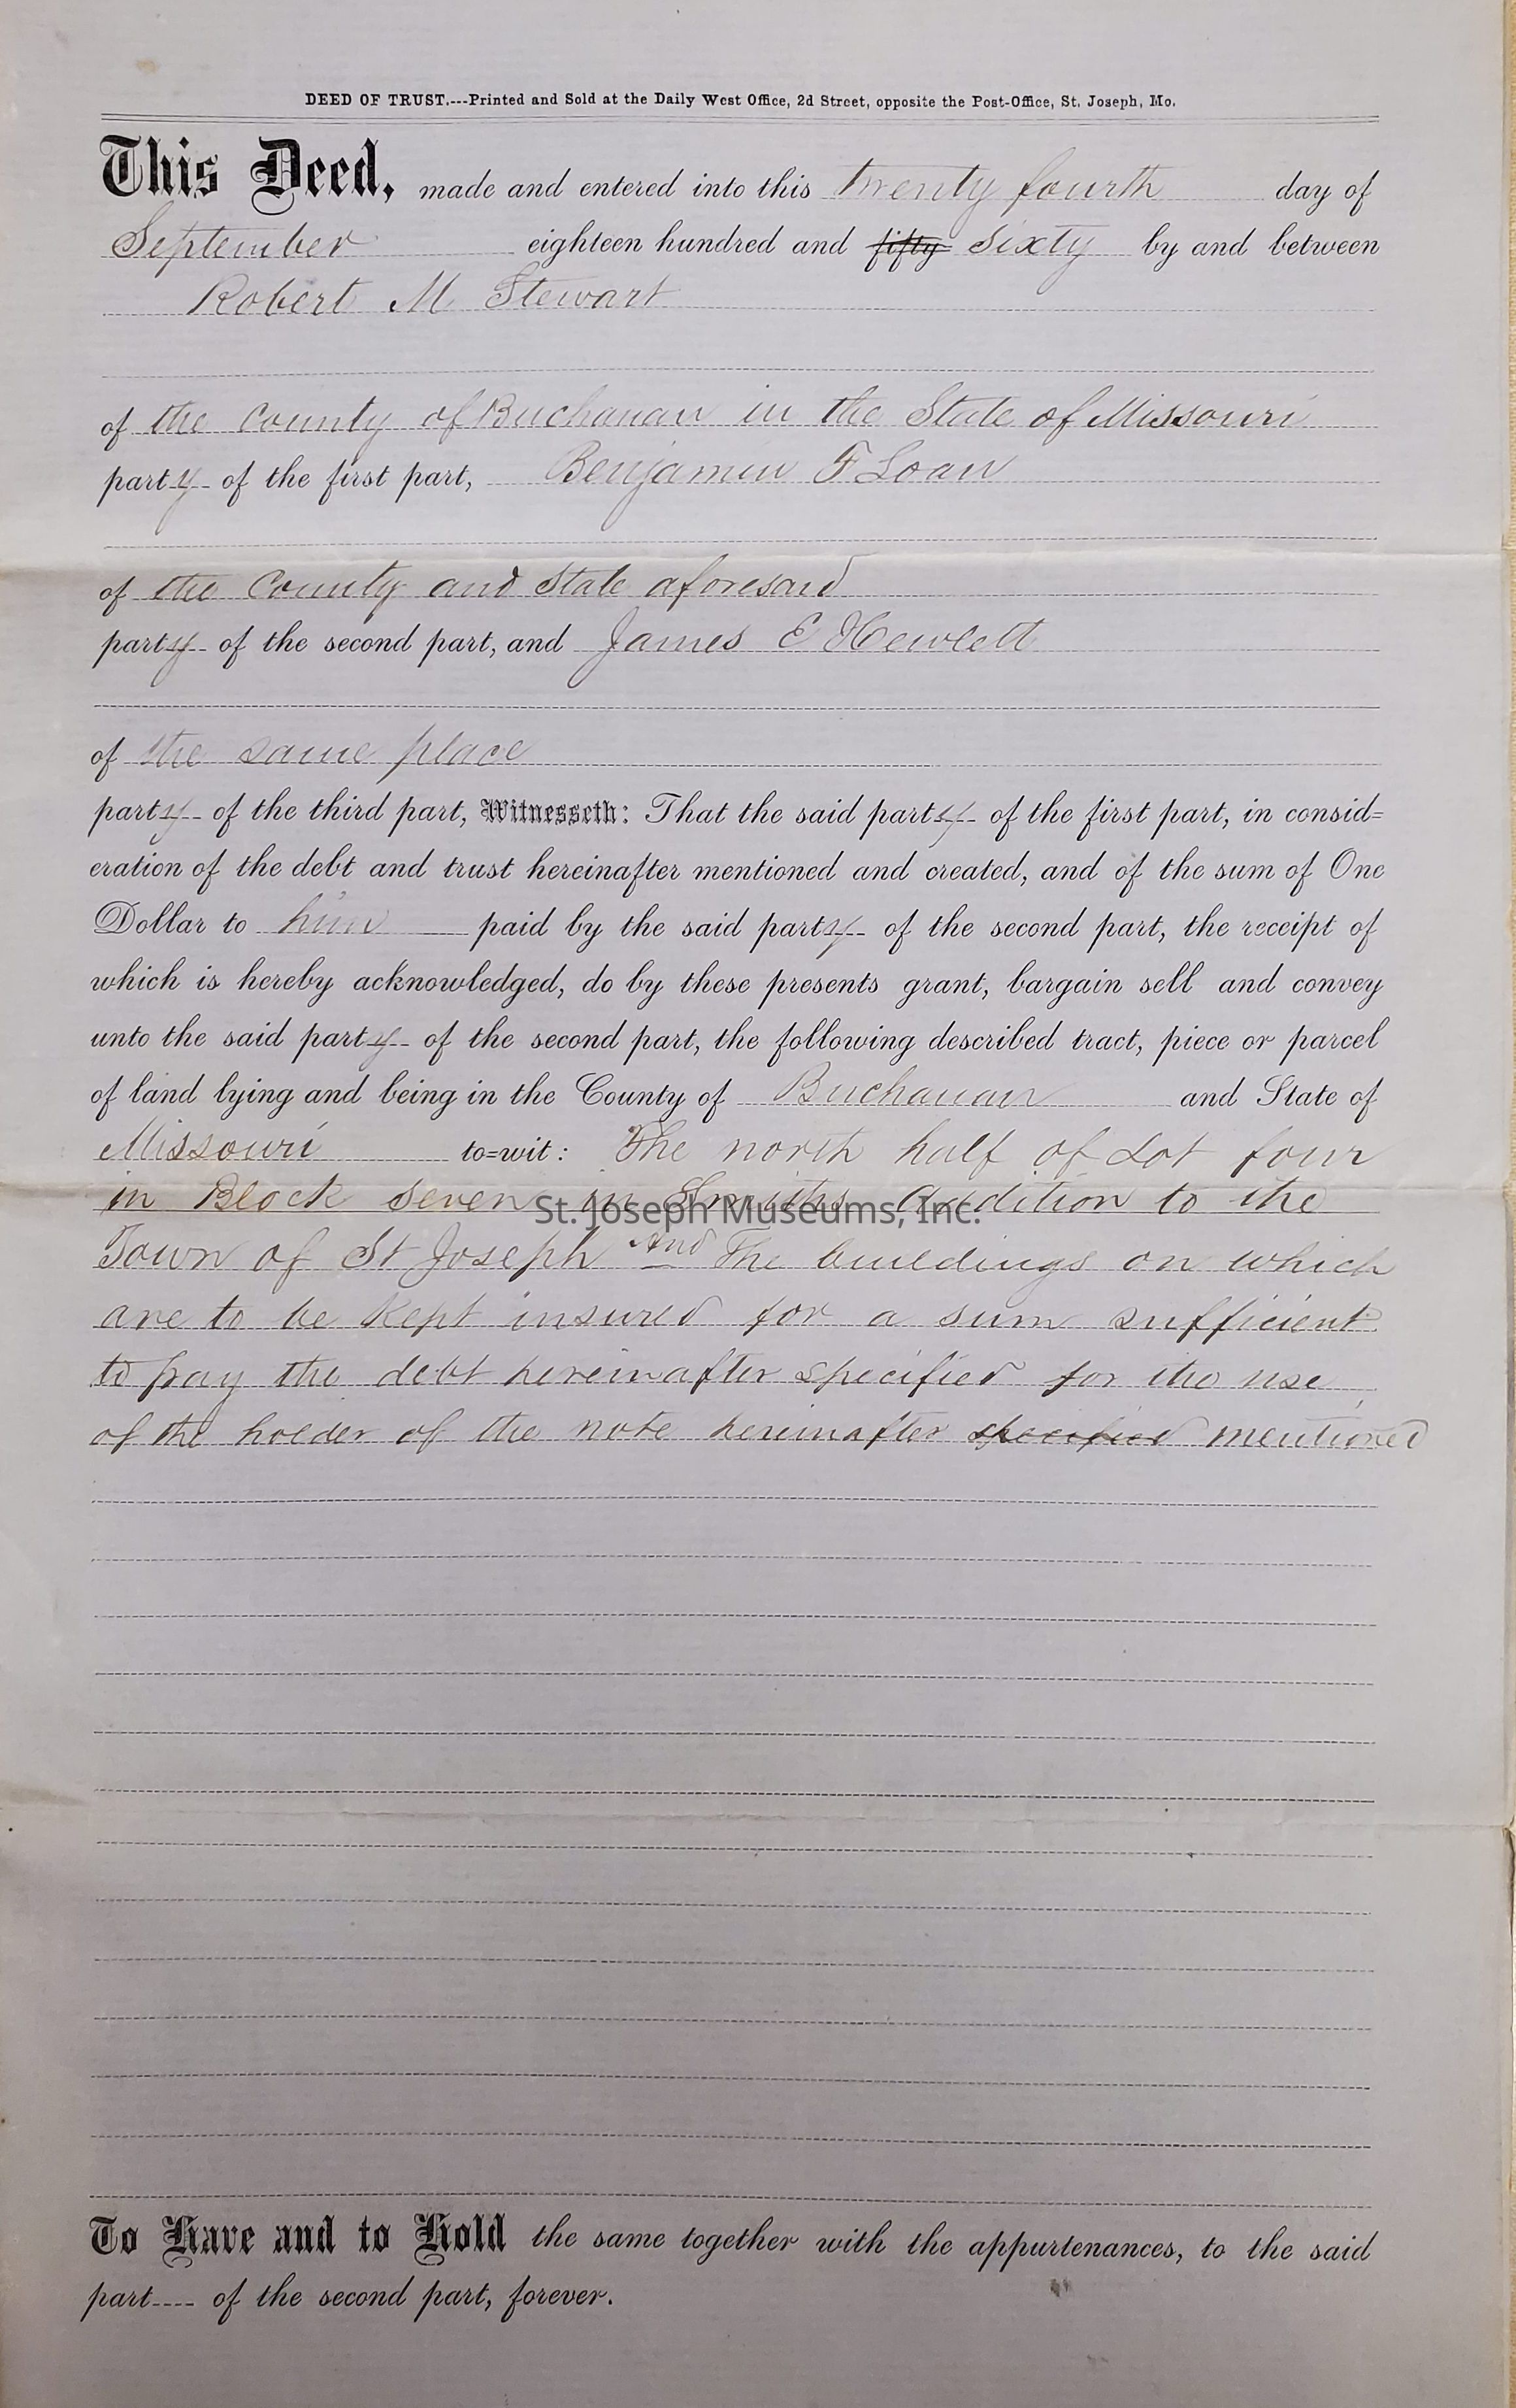 DEED OF TRUST.---Printed and Sold at the Daily West Office, 2d Street, opposite the Post-Office, St. Joseph, Mo.
This Deed, made and entered into this twenty fourth day of
September eighteen hundred and fifty sixty by and between
Robert M Stewart
of the County of Buchanan in the State of Missouri
party of the first part, Benjamin F Loan
of the County and State aforesaid
party of the second part, and James E Hewlett
of the same place
party of the third part, Witnesseth: That the said party of the first part, in consid=
eration of the debt and trust hereinafter mentioned and created, and of the sum of One
Dollar to him paid by the said party of the second part, the receipt of
which is hereby acknowledged, do by these presents grant, bargain sell and convey
unto the said party of the second part, the following described tract, piece or parcel
of land lying and being in the County of Buchanan and State of
Missouri to=wit: The north half of Lot four
in Block seven in Smiths Addition to the
St. Joseph Museums, Inc.
Town of St Joseph And The buildings on which
are to be kept insured for a sum sufficient
to pay the debt hereinafter specified for the use
of the holder of the note hereinafter specified mentioned
To Have and to Hold the same together with the appurtenances, to the said
part---- of the second part, forever.